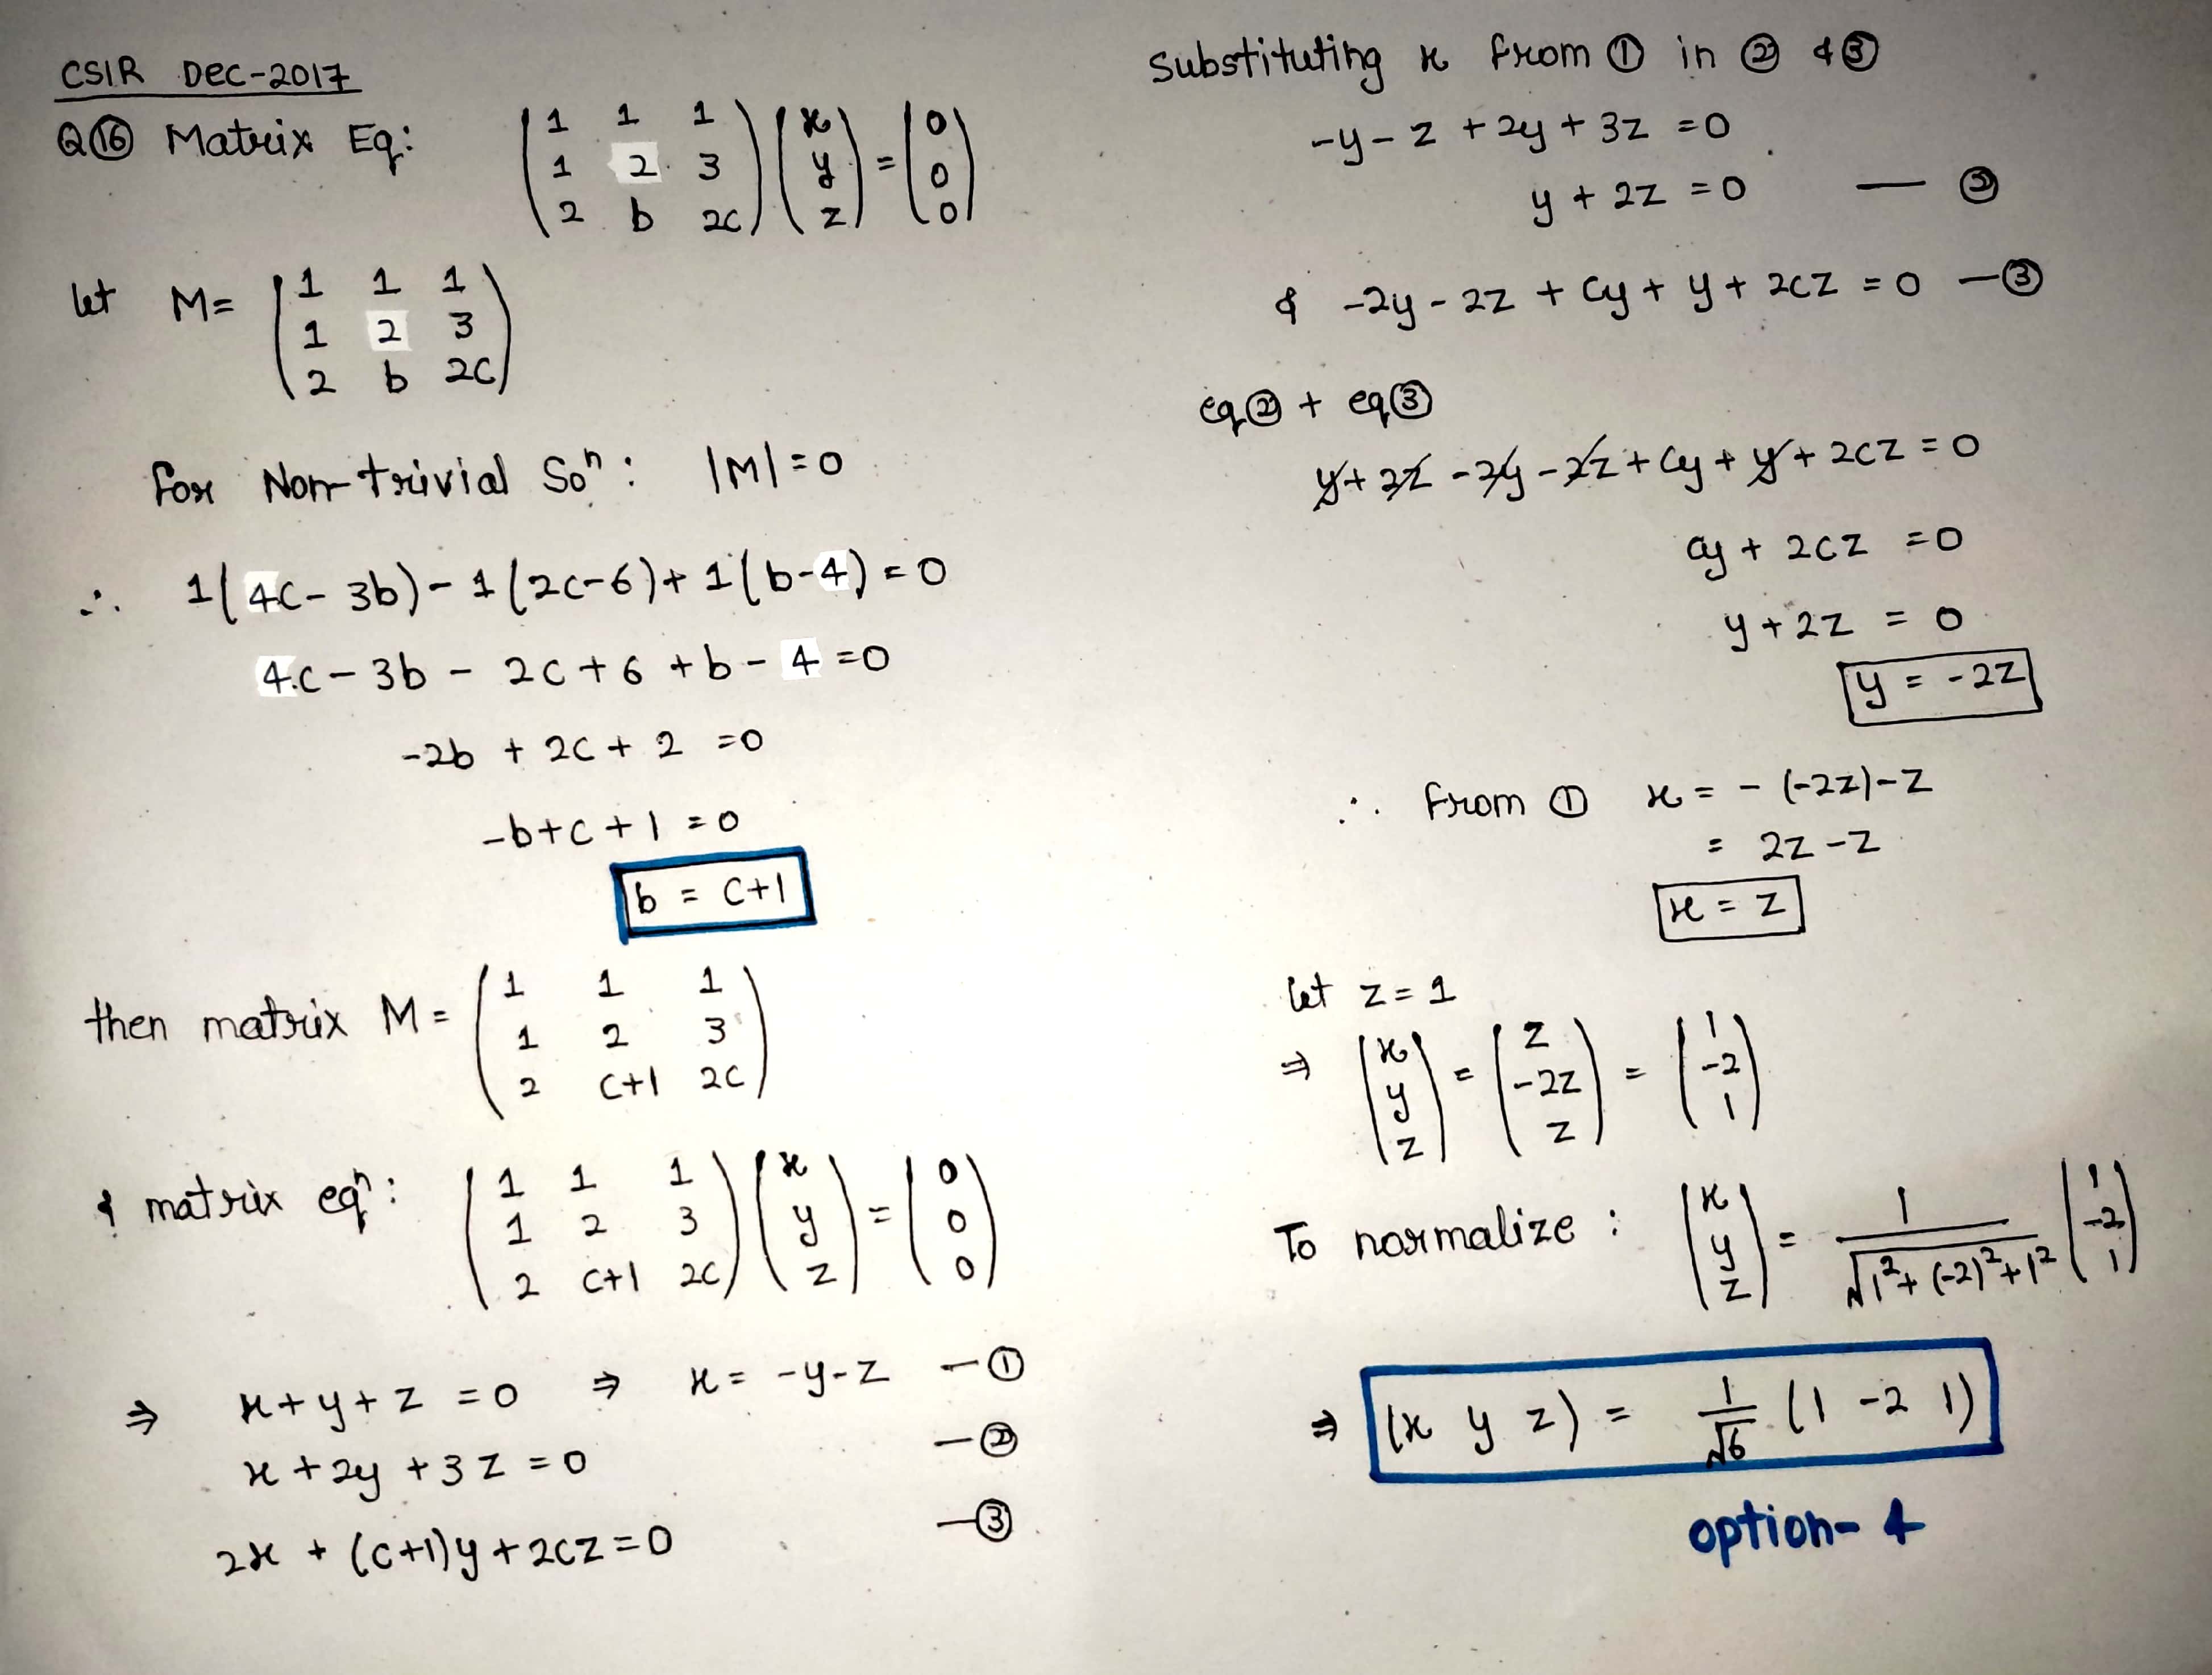 CSIR DEC-2017
Q⑯ Matrix Eq: (1 1 1; 1 2 3; 2 b 2c) (x; y; z) = (0; 0; 0)
let M= (1 1 1; 1 2 3; 2 b 2c)
for Non-trivial Soⁿ: |M|=0
∴ 1(4c-3b)-1(2c-6)+1(b-4)=0
4c-3b-2c+6+b-4=0
-2b+2c+2=0
-b+c+1=0
b = c+1
then matrix M= (1 1 1; 1 2 3; 2 c+1 2c)
& matrix eqⁿ: (1 1 1; 1 2 3; 2 c+1 2c) (x; y; z) = (0; 0; 0)
⇒ x+y+z=0 ⇒ x=-y-z —①
x+2y+3z=0 —②
2x+(c+1)y+2cz=0 —③
Substituting x from ① in ② & ③
-y-z+2y+3z=0
y+2z=0 — ②
& -2y-2z+cy+y+2cz=0 —③
eq② + eq③
y+2z-2y-2z+cy+y+2cz=0
cy+2cz=0
y+2z=0
y=-2z
∴ from ① x=-(-2z)-z
= 2z-z
x=z
let z=1
⇒ (x; y; z) = (z; -2z; z) = (1; -2; 1)
To normalize: (x; y; z) = 1/√1²+(-2)²+1² (1; -2; 1)
⇒ (x y z) = 1/√6 (1 -2 1)
option-4